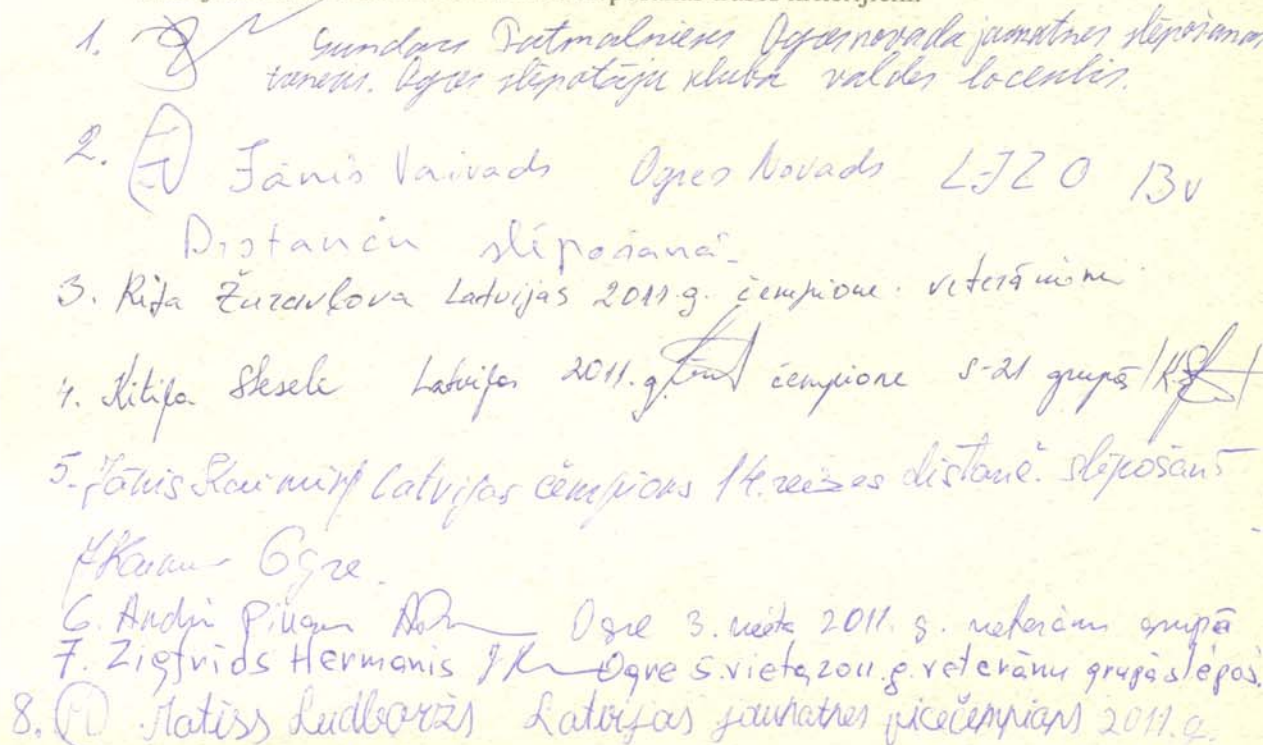 1. Gundars Ogres novada jaunatnes slēpošanas
treneris. Ogres slēpotāju kluba valdes loceklis.
2. Jānis Vaivads Ogres Novads LJZO BV
Distanču slēpošanā
3. Rita Žuravlova Latvijas 2011.g. čempione veterāniem
4. Kitija Latvijas 2011.g. čempione S-21 grupā
5. Jānis Latvijas čempions 14. reizes distanč. slēpošanā
Ogre.
6. Ogre 3. vieta 2011. g. veterānu grupā
7. Zigfrids Hermanis Ogre 5. vieta, 2011. g. veterānu grupā slēpoš.
8. Matīss Ludboržs Latvijas jaunatnes vicečempions 2011.g.